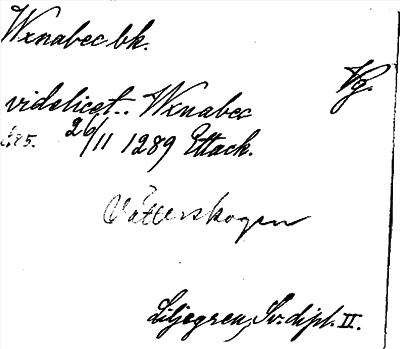 Wxnabec bk.
Vg.
videlicet.. Wxnabec
s.85. 26/11 1289 Ettack.
Vätterskogen
Liljegren, Sv. dipl. II.